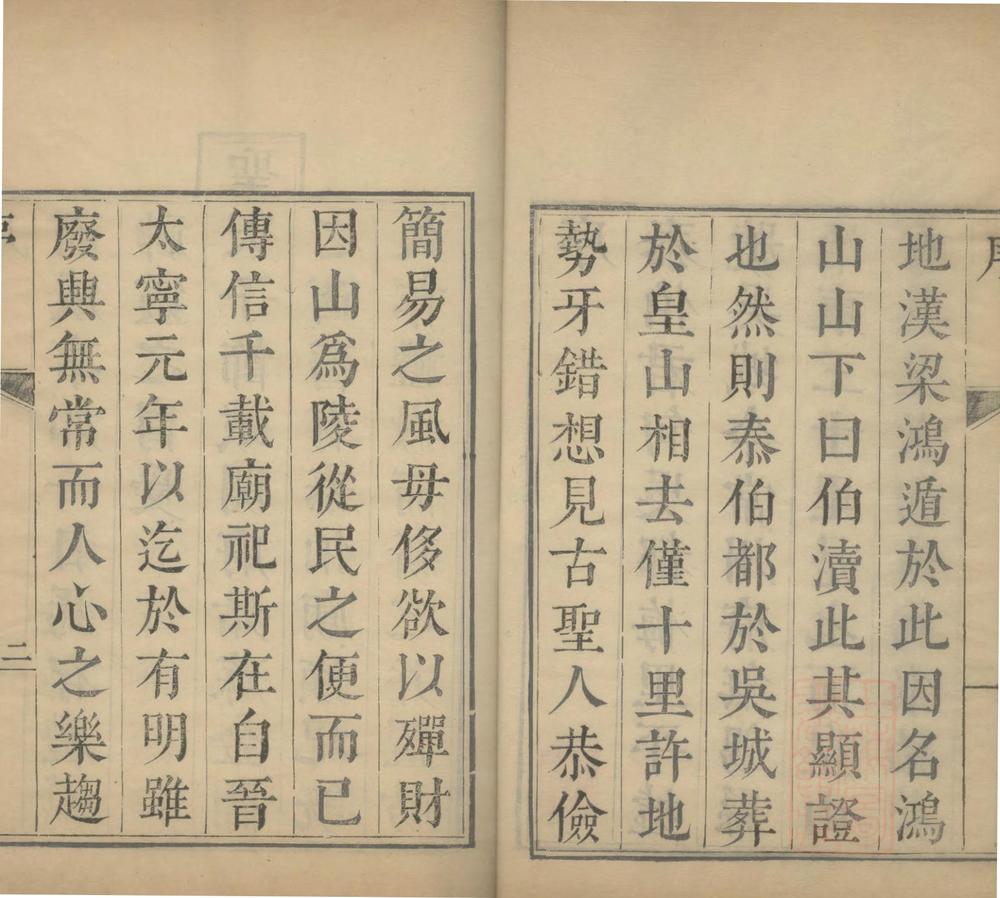 地漢梁鴻遁於此因名鴻
山山下曰伯瀆此其顯證
也然則泰伯都於吳城葬
於皇山相去僅十里許地
勢牙錯想見古聖人恭儉
簡易之風毋侈欲以殫財
因山爲陵從民之便而已
傳信千載廟祀斯在自晉
太寧元年以迄於有明雖
廢興無常而人心之樂趨
二